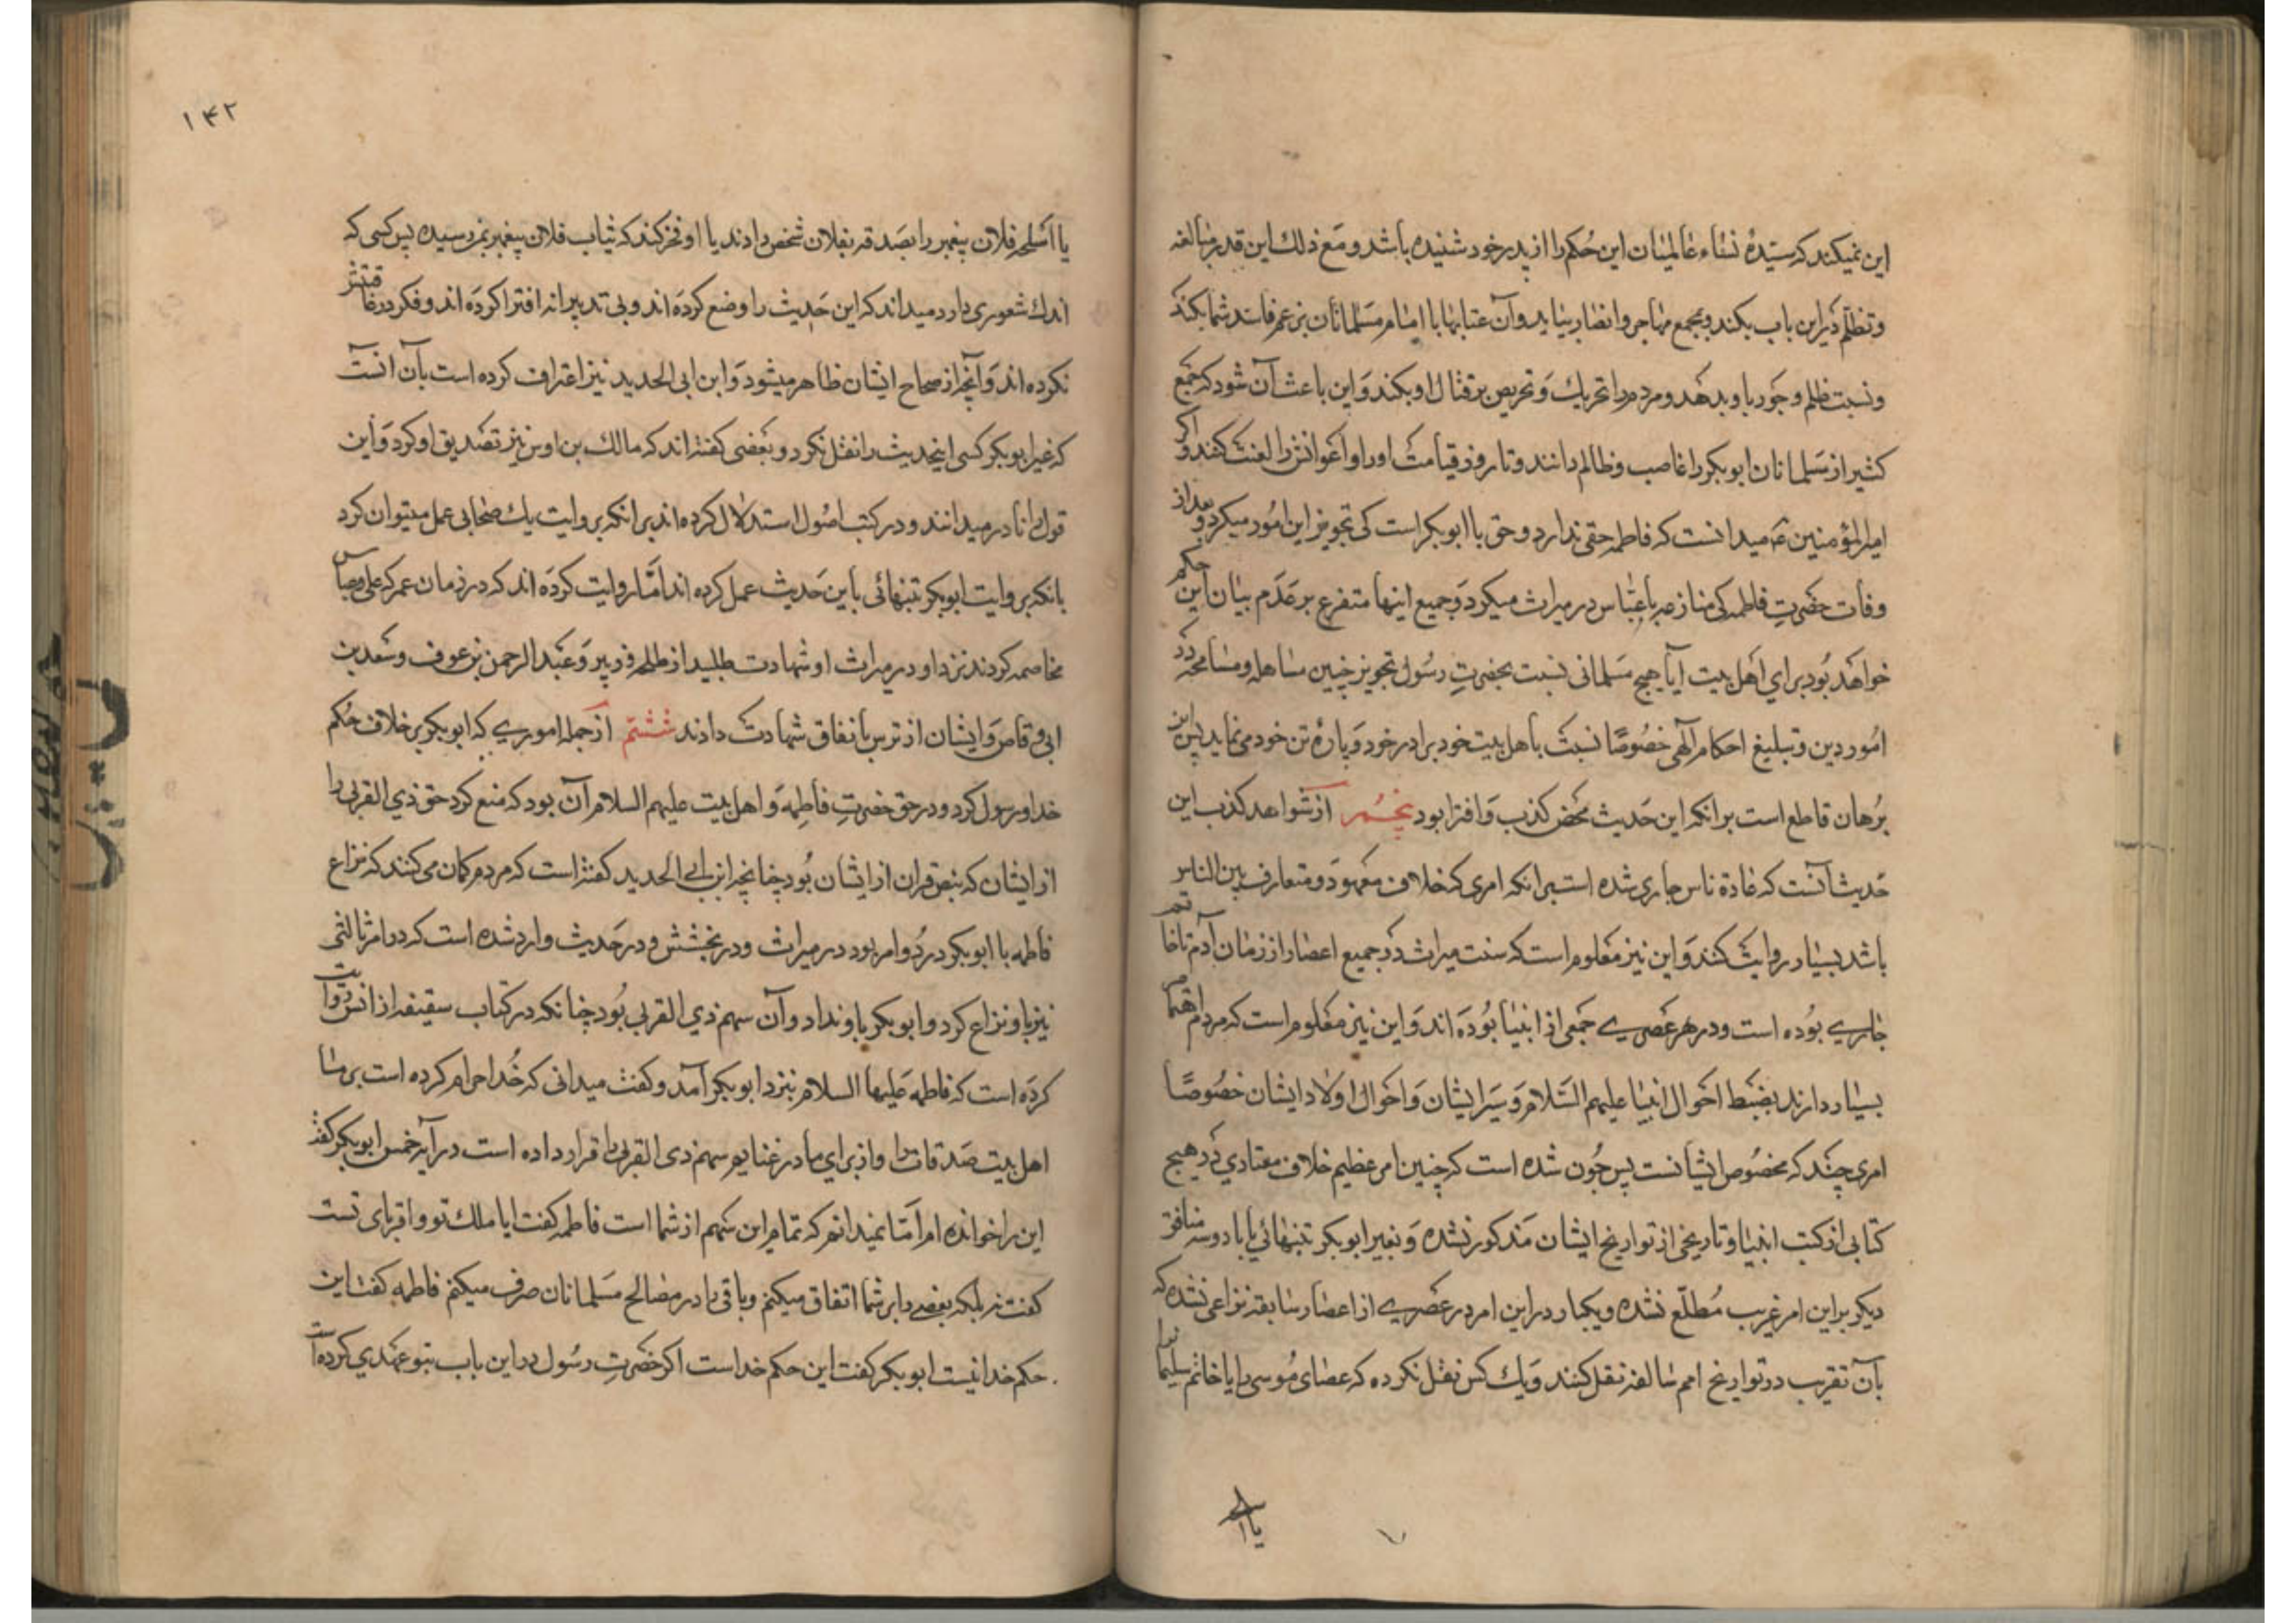 این نمیکند که سیّدهٔ نساء عالمیان این حُکم را از پدر خود شنیده باشد و مَع ذلك این قدر مبالغه
و تظلّم در این باب بکند و بمجمع مهاجر و انصار بیاید و آن عتابها با امام مسلمانان بزعم فاسد شما بکند
و نسبت ظلم و جَور باو بدهد و مردم را تحریك و تحریص بر قتال او بکند وَ این باعث آن شود که جمع
کثیر از مسلمانان ابوبکر را غاصب و ظالم دانند و تا روز قیامت او را و اَعوانش را لعنت کنند و اگر
امیرالمؤمنین ع میدانست که فاطمه حقی ندارد و حق با ابوبکر است کی تجویز این امُور میکرد و بعد از
وفات حضرتِ فاطمه کی منازعه با عبّاس در میراث میکرد وَ جمیع اینها متفرع بر عَدَم بیان این حکم
خواهد بُود برای اهل بیت آیا هیچ مسلمانی نسبت بحضرتِ رسُول تجویز چنین مساهله و مسامحه در
امُور دین و تبلیغ احکام الٓهی خصُوصًا نسبت باهل بیت خود برادر خود وَ پارهٔ تن خود می نماید پس این
بُرهان قاطع است بر انکه این حَدیث محض کذب وَ افترا بود پنجُم از شواهد کذب این
حَدیث آنست که عادة ناس جاری شده است بر انکه امری که خلاف معهود و متعارف بین الناس
باشد بسیار روایت کنند وَ این نیز معلوم است که سنت میراث در جمیع اعصار از زمان آدم تا خاتم
جاری بوده است و در هر عصری جمعی از انبیا بُودَه اند وَ این نیز معلوم است که مردم اهتمام
بسیار دارند بضبط احَوال انبیا علیهم السَّلام وَ سِیَر ایشان وَ احَوال اولاد ایشان خصُوصًا
امری چند که مخصُوص ایشانست پس چُون شده است که چنین امر عظیم خلاف معتادی در هیچ
کتابی از کتب انبیا و تاریخی از تواریخ ایشان مَذکور نشده وَ بغیر ابوبکر تنهائی یا با دو سه منافق
دیکر بر این امر غریب مُطلّع نشده و یکبار در این امر در عصری از اعصار سابقه نزاعی نشده که
بآن تقریب در تواریخ امم سالفه نقل کنند وَ یك کس نقل نکرده که عصای مُوسی را یا خاتم سلیمانرا
یا اسلحه
۱۴۲
یا اسلحه فلان پیغمبر را بصَدقه بفلان شخص دادند یا او فخر کند که ثیاب فلان پیغمبر بمن رسیده پس کسی که
اندك شعوری دارد میداند که این حَدیث را وضع کردَه اند و بی تدبیرانه افترا کردَه اند و فکر در عاقبتش
نکرده اند وَ آنچه از صحاح ایشان ظاهر میشود وَ ابن ابی الحدید نیز اعتراف کرده است بآن آنست
که غیر ابوبکر کسی اینحدیث را نقل نکرد و بَعضی گفته اند که مالك بن اوس نیز تصَدیق او کرد وَ این
قول را نادر میدانند و در کتب اصُول استدلال کرده اند بر انکه بروایت یك صحابی عمل میتوان کرد
بانکه بروایت ابوبکر تنهائی باین حَدیث عمل کرده اند امّا روایت کردَه اند که در زمان عمر که علی و عباس
مخاصمه کردند نزد او در میراث او شهادت طلبید از طلحه و زبیر وَ عَبد الرحمن بن عوف و سَعد بن
ابی وقاص وَ ایشان از ترس باتفاق شهادت دادند ششم از جمله اموری که ابوبکر بر خلاف حُکم
خدا و رسول کرد و در حق حضرتِ فاطِمَه وَ اهل بیت علیهم السلام آن بود که منع کرد حق ذی القربی را
از ایشان که بنص قران از ایشان بُود چنانچه ابن ابی الحدید کفته است که مردم کمان می کنند که نزاع
فاطمه با ابوبکر در دُو امر بود در میراث و در بخشش و در حَدیث وارد شده است که در امر ثالثی
نیز باو نزاع کرد و ابوبکر باو نداد و آن سهم ذی القربی بُود چنانکه در کتاب سقیفه از انس روایت
کردَه است که فاطمه عَلیها السلام بنزد ابوبکر آمد و کفت میدانی که خُدا حرام کرده است بر ما
اهل بیت صَدقات را و از برای ما در غنایم سهم ذی القربی را قرار داده است در آیه خمس ابوبکر کفت
این را خوانده ام امَّا نمیدانم که تمام این سَهم از شما است فاطمه کفت ایا ملك تو و اقربای تست
کفت نه بلکه بعضی را بر شما انفاق میکنم و باقی را در مصالح مسلمانان صرف میکنم فاطمه کفت این
حکم خدا نیست ابوبکر کفت این حکم خداست اکر حضرتِ رسُول در این باب بتو عَهدی کرده است